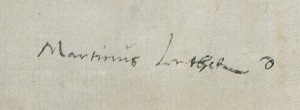 Martinus Luther D